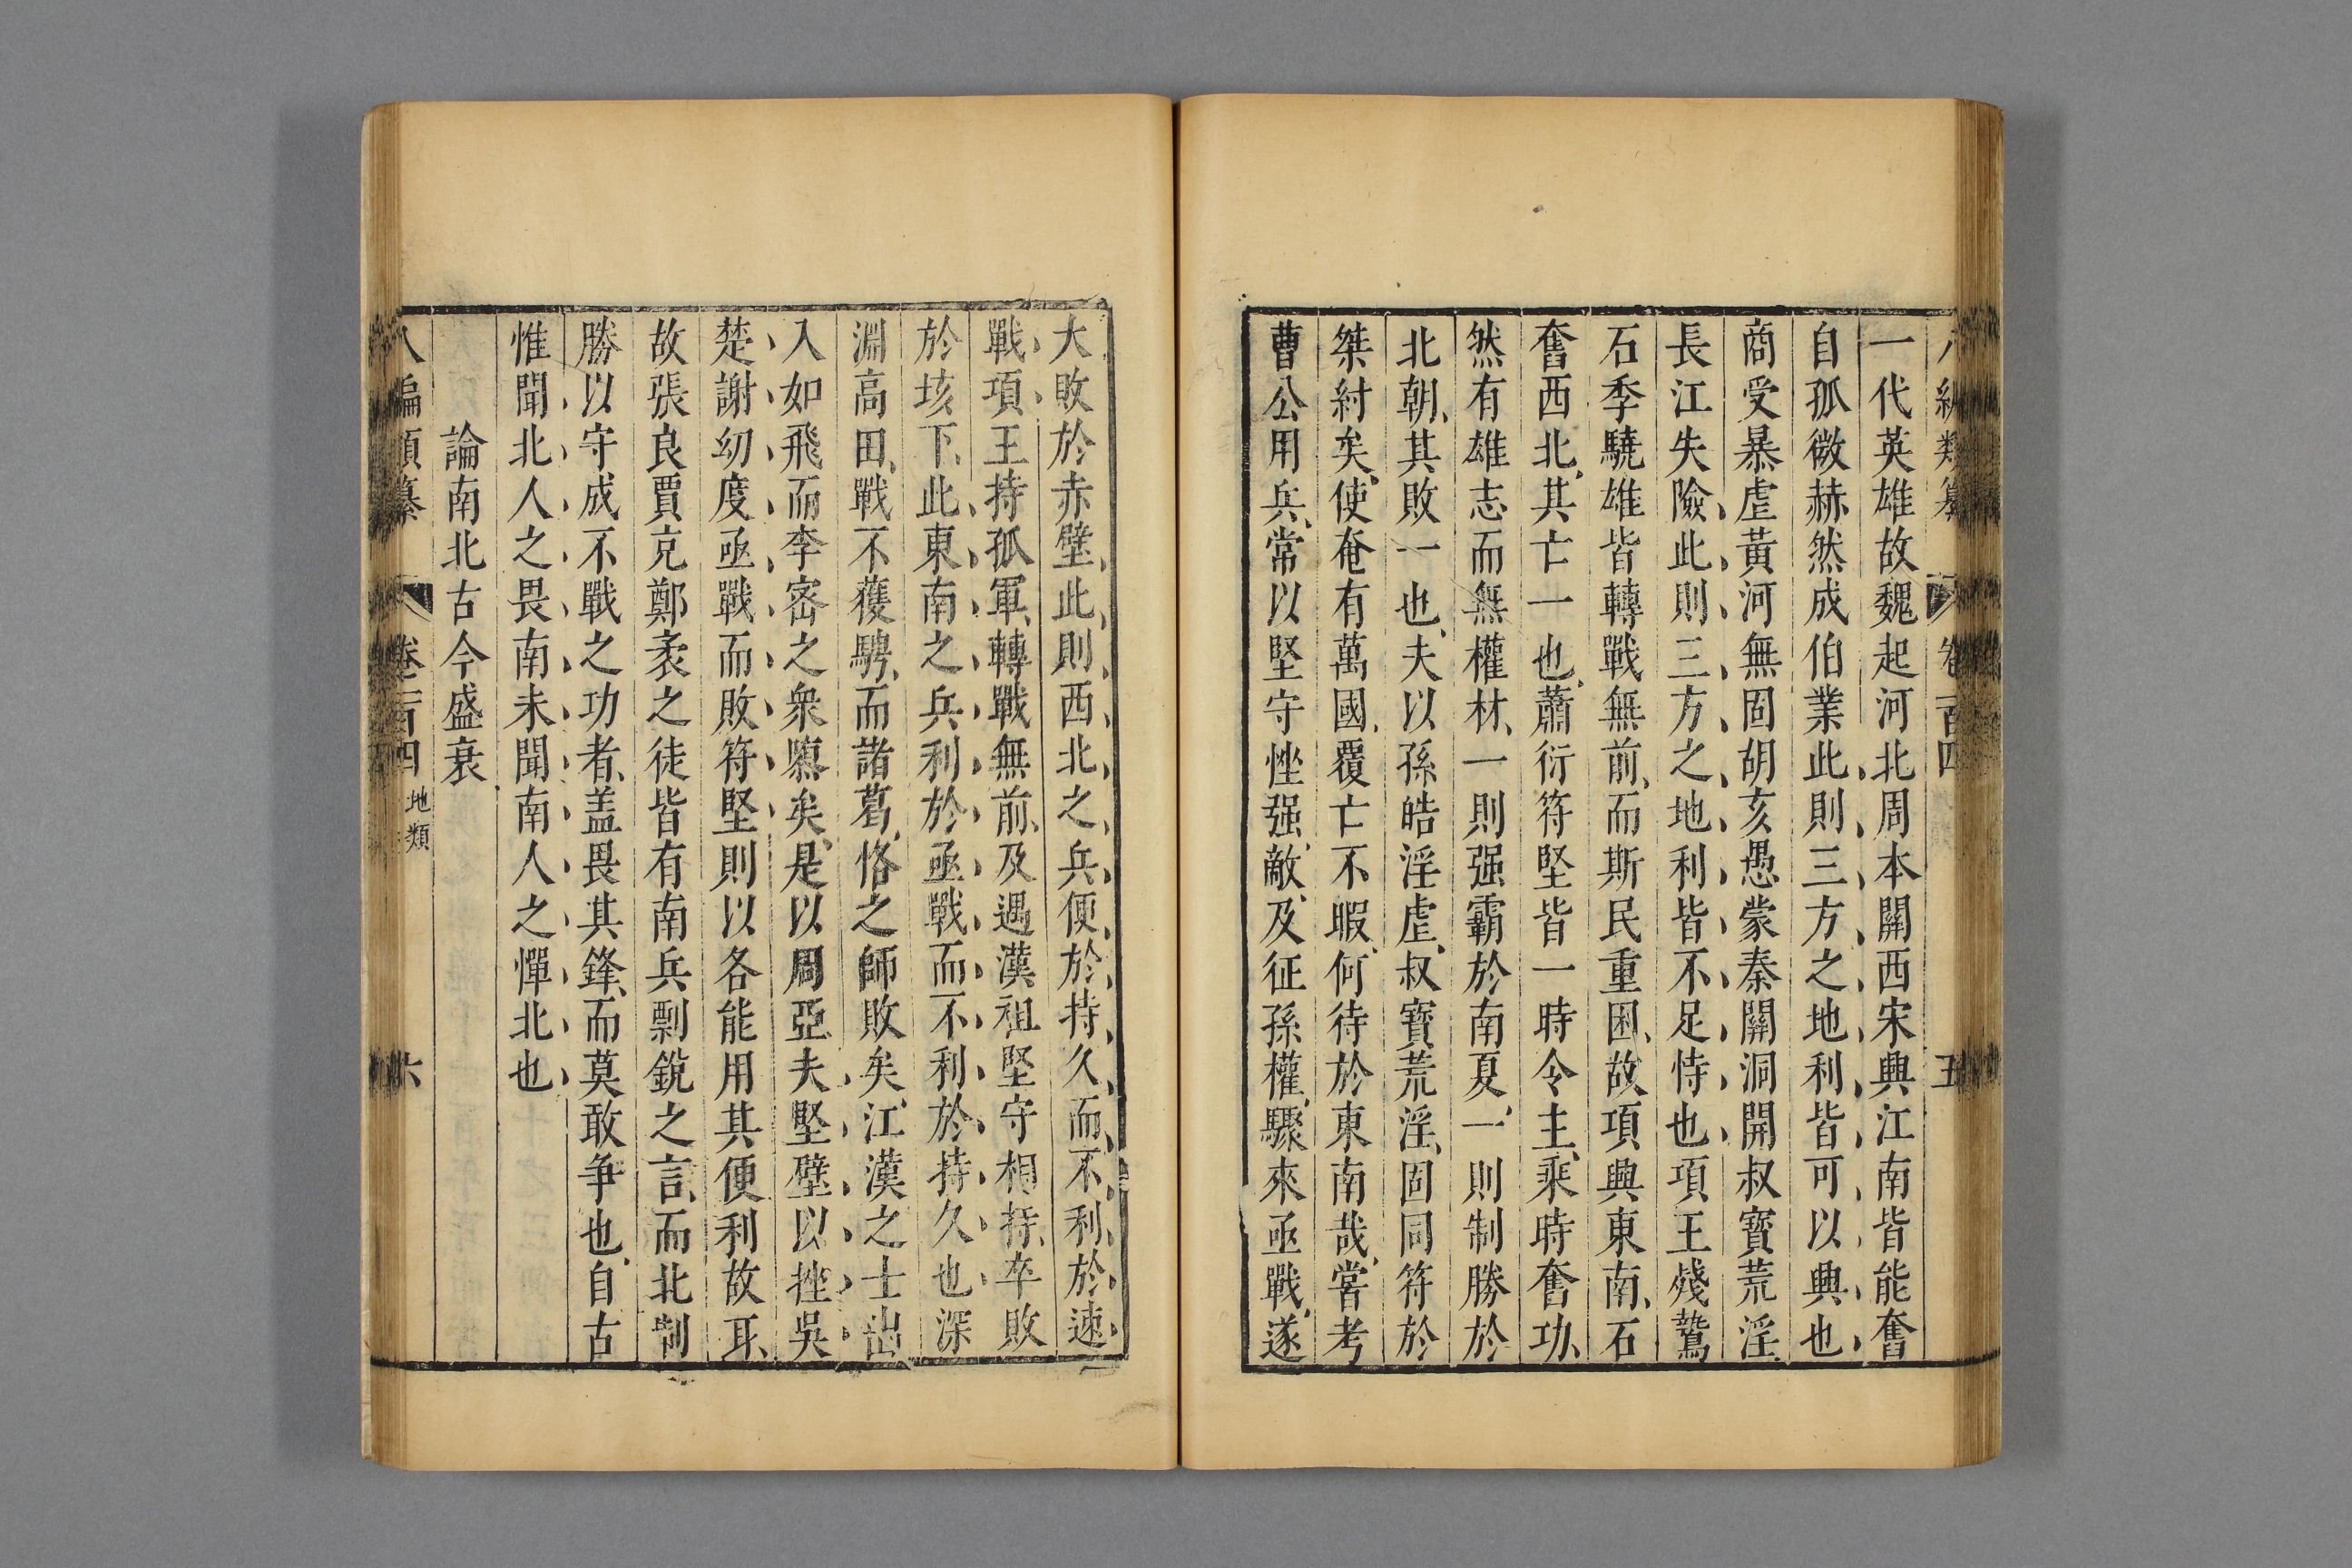 八編類纂 卷一百四 五
一代英雄故魏起河北周本關西宋興江南皆能奮
自孤微赫然成伯業此則三方之地利皆可以興也
商受暴虐黃河無固胡亥愚蒙秦關洞開叔寶荒淫
長江失險此則三方之地利皆不足恃也項王殘鷙
石季驍雄皆轉戰無前而斯民重困故項興東南石
奮西北其亡一也蕭衍符堅皆一時令主乘時奮功
然有雄志而無權材一則强霸於南夏一則制勝於
北朝其敗一也夫以孫皓淫虐叔寶荒淫固同符於
桀紂矣使奄有萬國覆亡不暇何待於東南哉嘗考
曹公用兵常以堅守挫强敵及征孫權驟來亟戰遂
大敗於赤壁此則西北之兵便於持久而不利於速
戰項王持孤軍轉戰無前及遇漢祖堅守相持卒敗
於垓下此東南之兵利於亟戰而不利於持久也深
淵高田戰不獲騁而諸葛恪之師敗矣江漢之士出
入如飛而李密之衆隳矣是以周亞夫堅壁以挫吳
楚謝幼度亟戰而敗符堅則以各能用其便利故耳
故張良賈充鄭袤之徒皆有南兵剽銳之言而北制
勝以守成不戰之功者盖畏其鋒而莫敢争也自古
惟聞北人之畏南未聞南人之憚北也
論南北古今盛衰
八編類纂 卷一百四 地類 六